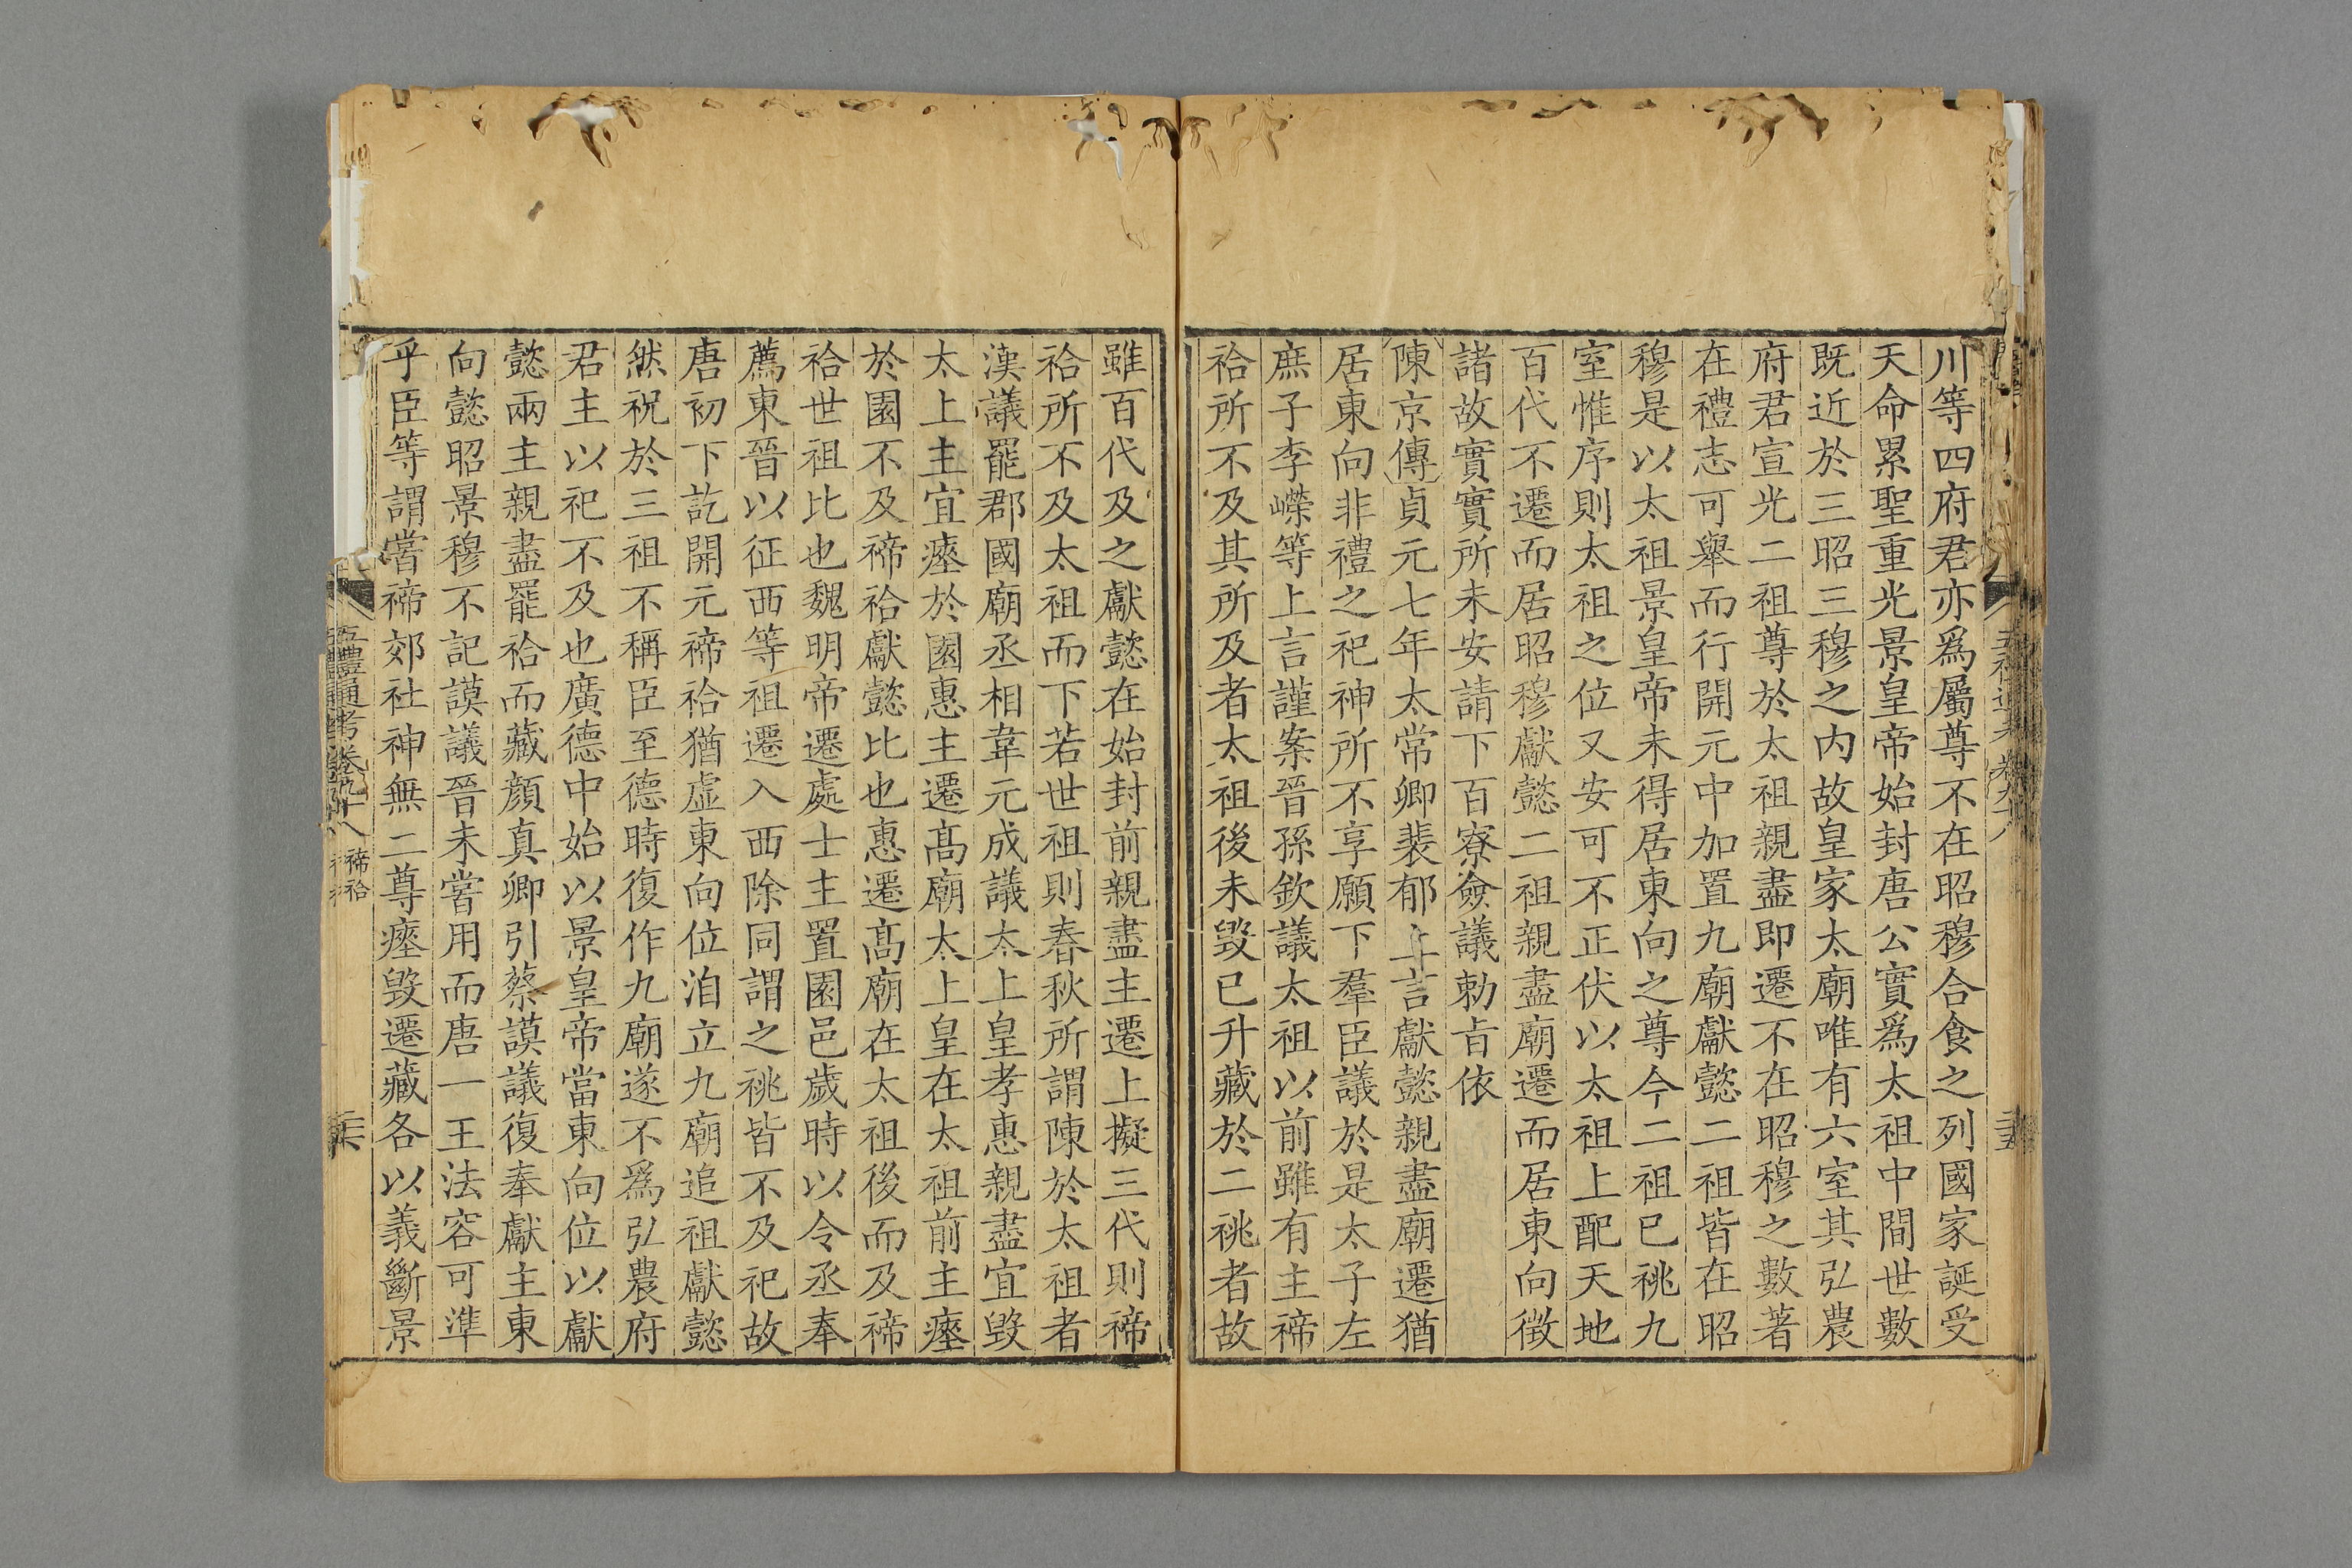 川等四府君亦爲屬尊不在昭穆合食之列國家誕受
天命累聖重光景皇帝始封唐公實爲太祖中間世數
既近於三昭三穆之内故皇家太廟唯有六室其弘農
府君宣光二祖尊於太祖親盡即遷不在昭穆之數著
在禮志可舉而行開元中加置九廟獻懿二祖皆在昭
穆是以太祖景皇帝未得居東向之尊今二祖已祧九
室惟序則太祖之位又安可不正伏以太祖上配天地
百代不遷而居昭穆獻懿二祖親盡廟遷而居東向徴
諸故實實所未安請下百寮僉議勅㫖依
陳京傳貞元七年太常卿裴郁上言獻懿親盡廟遷猶
居東向非禮之祀神所不享願下羣臣議於是太子左
庶子李嶸等上言謹案晉孫欽議太祖以前雖有主禘
祫所不及其所及者太祖後未毀已升藏於二祧者故
雖百代及之獻懿在始封前親盡主遷上擬三代則禘
祫所不及太祖而下若世祖則春秋所謂陳於太祖者
漢議罷郡國廟丞相韋元成議太上皇孝惠親盡宜毀
太上主宜瘞於園惠主遷髙廟太上皇在太祖前主瘞
於園不及禘祫獻懿比也惠遷髙廟在太祖後而及禘
祫世祖比也魏明帝遷處士主置園邑歲時以令丞奉
薦東晉以征西等祖遷入西除同謂之祧皆不及祀故
唐初下訖開元禘祫猶虚東向位洎立九廟追祖獻懿
然祝於三祖不稱臣至德時復作九廟遂不爲弘農府
君主以祀不及也廣德中始以景皇帝當東向位以獻
懿兩主親盡罷祫而藏顔真卿引蔡謨議復奉獻主東
向懿昭景穆不記謨議晉未嘗用而唐一王法容可準
乎臣等謂嘗禘郊社神無二尊瘞毀遷藏各以義斷景
五禮通考卷九十八 禘祫